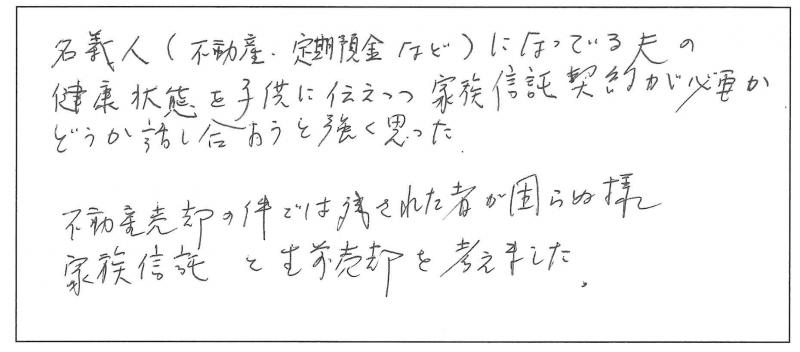 名義人(不動産.定期預金など)になっている夫の
健康状態を子供に伝えつつ家族信託契約が必要か
どうか話し合おうと強く思った.
不動産売却の件では残された者が困らぬ様
家族信託と生前売却を考えました.